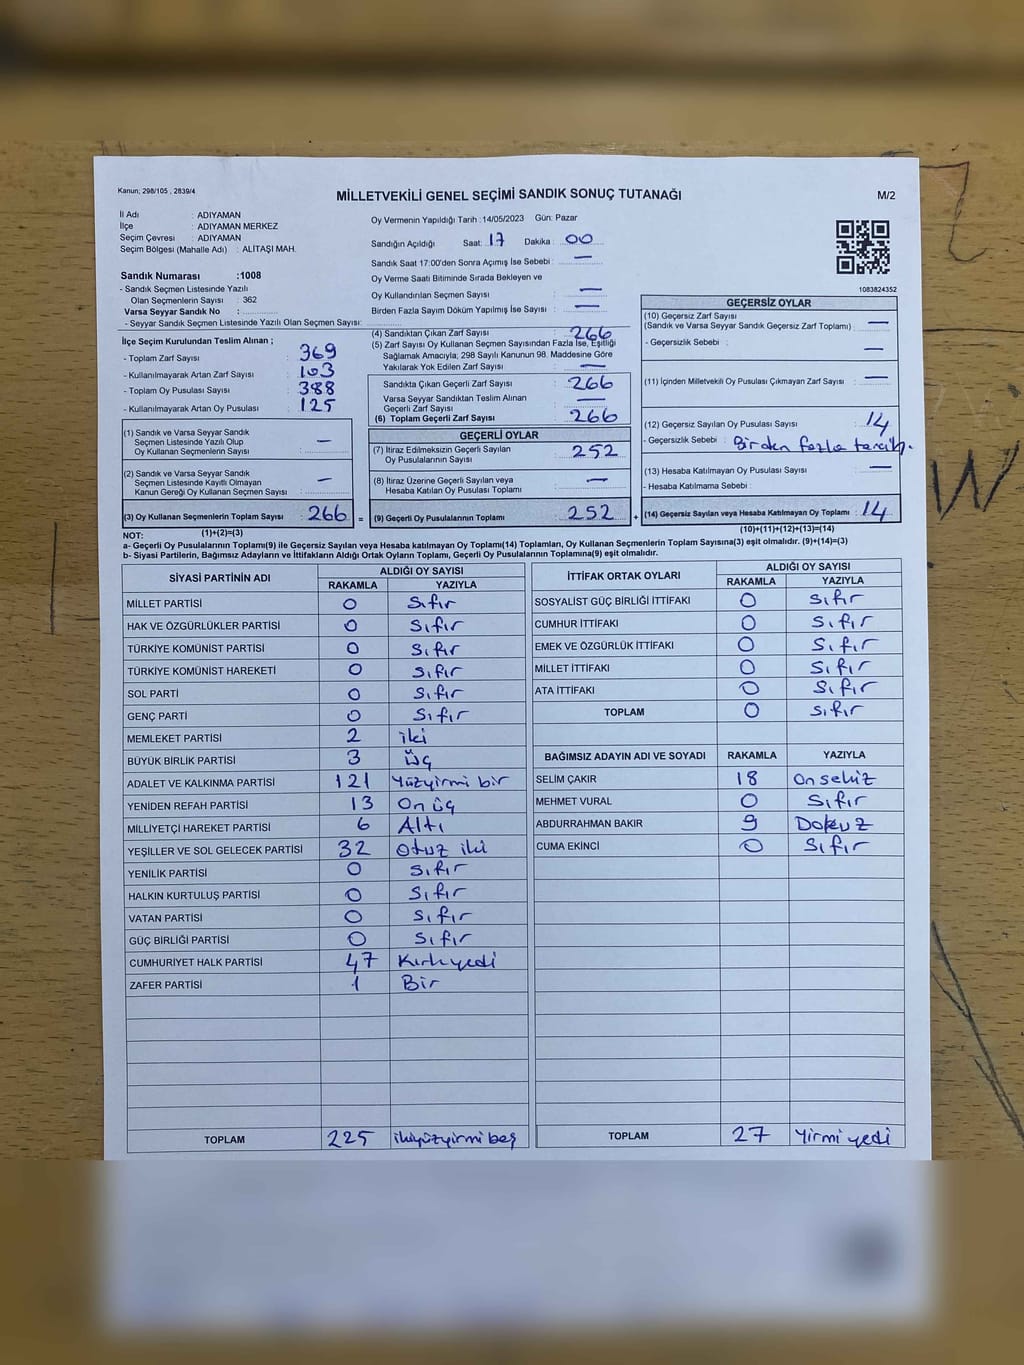 Kanun; 298/105 , 2839/4
MİLLETVEKİLİ GENEL SEÇİMİ SANDIK SONUÇ TUTANAĞI
M/2
İl Adı : ADIYAMAN
İlçe : ADIYAMAN MERKEZ
Seçim Çevresi : ADIYAMAN
Seçim Bölgesi (Mahalle Adı) : ALİTAŞI MAH.
Sandık Numarası :1008
- Sandık Seçmen Listesinde Yazılı
Olan Seçmenlerin Sayısı : 362
Varsa Seyyar Sandık No :
- Seyyar Sandık Seçmen Listesinde Yazılı Olan Seçmen Sayısı:
Oy Vermenin Yapıldığı Tarih : 14/05/2023 Gün: Pazar
Sandığın Açıldığı Saat: 17 Dakika : 00
Sandık Saat 17:00'den Sonra Açımış İse Sebebi : —
Oy Verme Saati Bitiminde Sırada Bekleyen ve
Oy Kullandırılan Seçmen Sayısı : —
Birden Fazla Sayım Döküm Yapılmış İse Sayısı : —
1083824352
İlçe Seçim Kurulundan Teslim Alınan ;
- Toplam Zarf Sayısı : 369
- Kullanılmayarak Artan Zarf Sayısı : 103
- Toplam Oy Pusulası Sayısı : 388
- Kullanılmayarak Artan Oy Pusulası : 125
(1) Sandık ve Varsa Seyyar Sandık
Seçmen Listesinde Yazılı Olup
Oy Kullanan Seçmenlerin Sayısı : —
(2) Sandık ve Varsa Seyyar Sandık
Seçmen Listesinde Kayıtlı Olmayan
Kanun Gereği Oy Kullanan Seçmen Sayısı : —
(3) Oy Kullanan Seçmenlerin Toplam Sayısı : 266 =
(1)+(2)=(3)
(4) Sandıktan Çıkan Zarf Sayısı : 266
(5) Zarf Sayısı Oy Kullanan Seçmen Sayısından Fazla İse, Eşitliği
Sağlamak Amacıyla; 298 Sayılı Kanunun 98. Maddesine Göre
Yakılarak Yok Edilen Zarf Sayısı : —
Sandıkta Çıkan Geçerli Zarf Sayısı : 266
Varsa Seyyar Sandıktan Teslim Alınan
Geçerli Zarf Sayısı : —
(6) Toplam Geçerli Zarf Sayısı : 266
GEÇERLİ OYLAR
(7) İtiraz Edilmeksizin Geçerli Sayılan
Oy Pusulalarının Sayısı : 252
(8) İtiraz Üzerine Geçerli Sayılan veya
Hesaba Katılan Oy Pusulası Toplamı : —
(9) Geçerli Oy Pusulalarının Toplamı : 252 +
GEÇERSİZ OYLAR
(10) Geçersiz Zarf Sayısı
(Sandık ve Varsa Seyyar Sandık Geçersiz Zarf Toplamı) : —
- Geçersizlik Sebebi : —
(11) İçinden Milletvekili Oy Pusulası Çıkmayan Zarf Sayısı : —
(12) Geçersiz Sayılan Oy Pusulası Sayısı : 14
- Geçersizlik Sebebi : Birden fazla tercih.
(13) Hesaba Katılmayan Oy Pusulası Sayısı : —
- Hesaba Katılmama Sebebi :
(14) Geçersiz Sayılan veya Hesaba Katılmayan Oy Toplamı : 14
(10)+(11)+(12)+(13)=(14)
NOT:
a- Geçerli Oy Pusulalarının Toplamı(9) ile Geçersiz Sayılan veya Hesaba katılmayan Oy Toplamı(14) Toplamları, Oy Kullanan Seçmenlerin Toplam Sayısına(3) eşit olmalıdır. (9)+(14)=(3)
b- Siyasi Partilerin, Bağımsız Adayların ve İttifakların Aldığı Ortak Oyların Toplamı, Geçerli Oy Pusulalarının Toplamına(9) eşit olmalıdır.
SİYASİ PARTİNİN ADI ALDIĞI OY SAYISI
RAKAMLA YAZIYLA
MİLLET PARTİSİ 0 Sıfır
HAK VE ÖZGÜRLÜKLER PARTİSİ 0 Sıfır
TÜRKİYE KOMÜNİST PARTİSİ 0 Sıfır
TÜRKİYE KOMÜNİST HAREKETİ 0 Sıfır
SOL PARTİ 0 Sıfır
GENÇ PARTİ 0 Sıfır
MEMLEKET PARTİSİ 2 iki
BÜYÜK BİRLİK PARTİSİ 3 üç
ADALET VE KALKINMA PARTİSİ 121 Yüzyirmi bir
YENİDEN REFAH PARTİSİ 13 On üç
MİLLİYETÇİ HAREKET PARTİSİ 6 Altı
YEŞİLLER VE SOL GELECEK PARTİSİ 32 Otuz iki
YENİLİK PARTİSİ 0 Sıfır
HALKIN KURTULUŞ PARTİSİ 0 Sıfır
VATAN PARTİSİ 0 Sıfır
GÜÇ BİRLİĞİ PARTİSİ 0 Sıfır
CUMHURİYET HALK PARTİSİ 47 Kırkyedi
ZAFER PARTİSİ 1 Bir
TOPLAM 225 ikiyüzyirmi beş
İTTİFAK ORTAK OYLARI ALDIĞI OY SAYISI
RAKAMLA YAZIYLA
SOSYALİST GÜÇ BİRLİĞİ İTTİFAKI 0 Sıfır
CUMHUR İTTİFAKI 0 Sıfır
EMEK VE ÖZGÜRLÜK İTTİFAKI 0 Sıfır
MİLLET İTTİFAKI 0 Sıfır
ATA İTTİFAKI 0 Sıfır
TOPLAM 0 Sıfır
BAĞIMSIZ ADAYIN ADI VE SOYADI RAKAMLA YAZIYLA
SELİM ÇAKIR 18 On sekiz
MEHMET VURAL 0 Sıfır
ABDURRAHMAN BAKIR 9 Dokuz
CUMA EKİNCİ 0 Sıfır
TOPLAM 27 Yirmi yedi
W